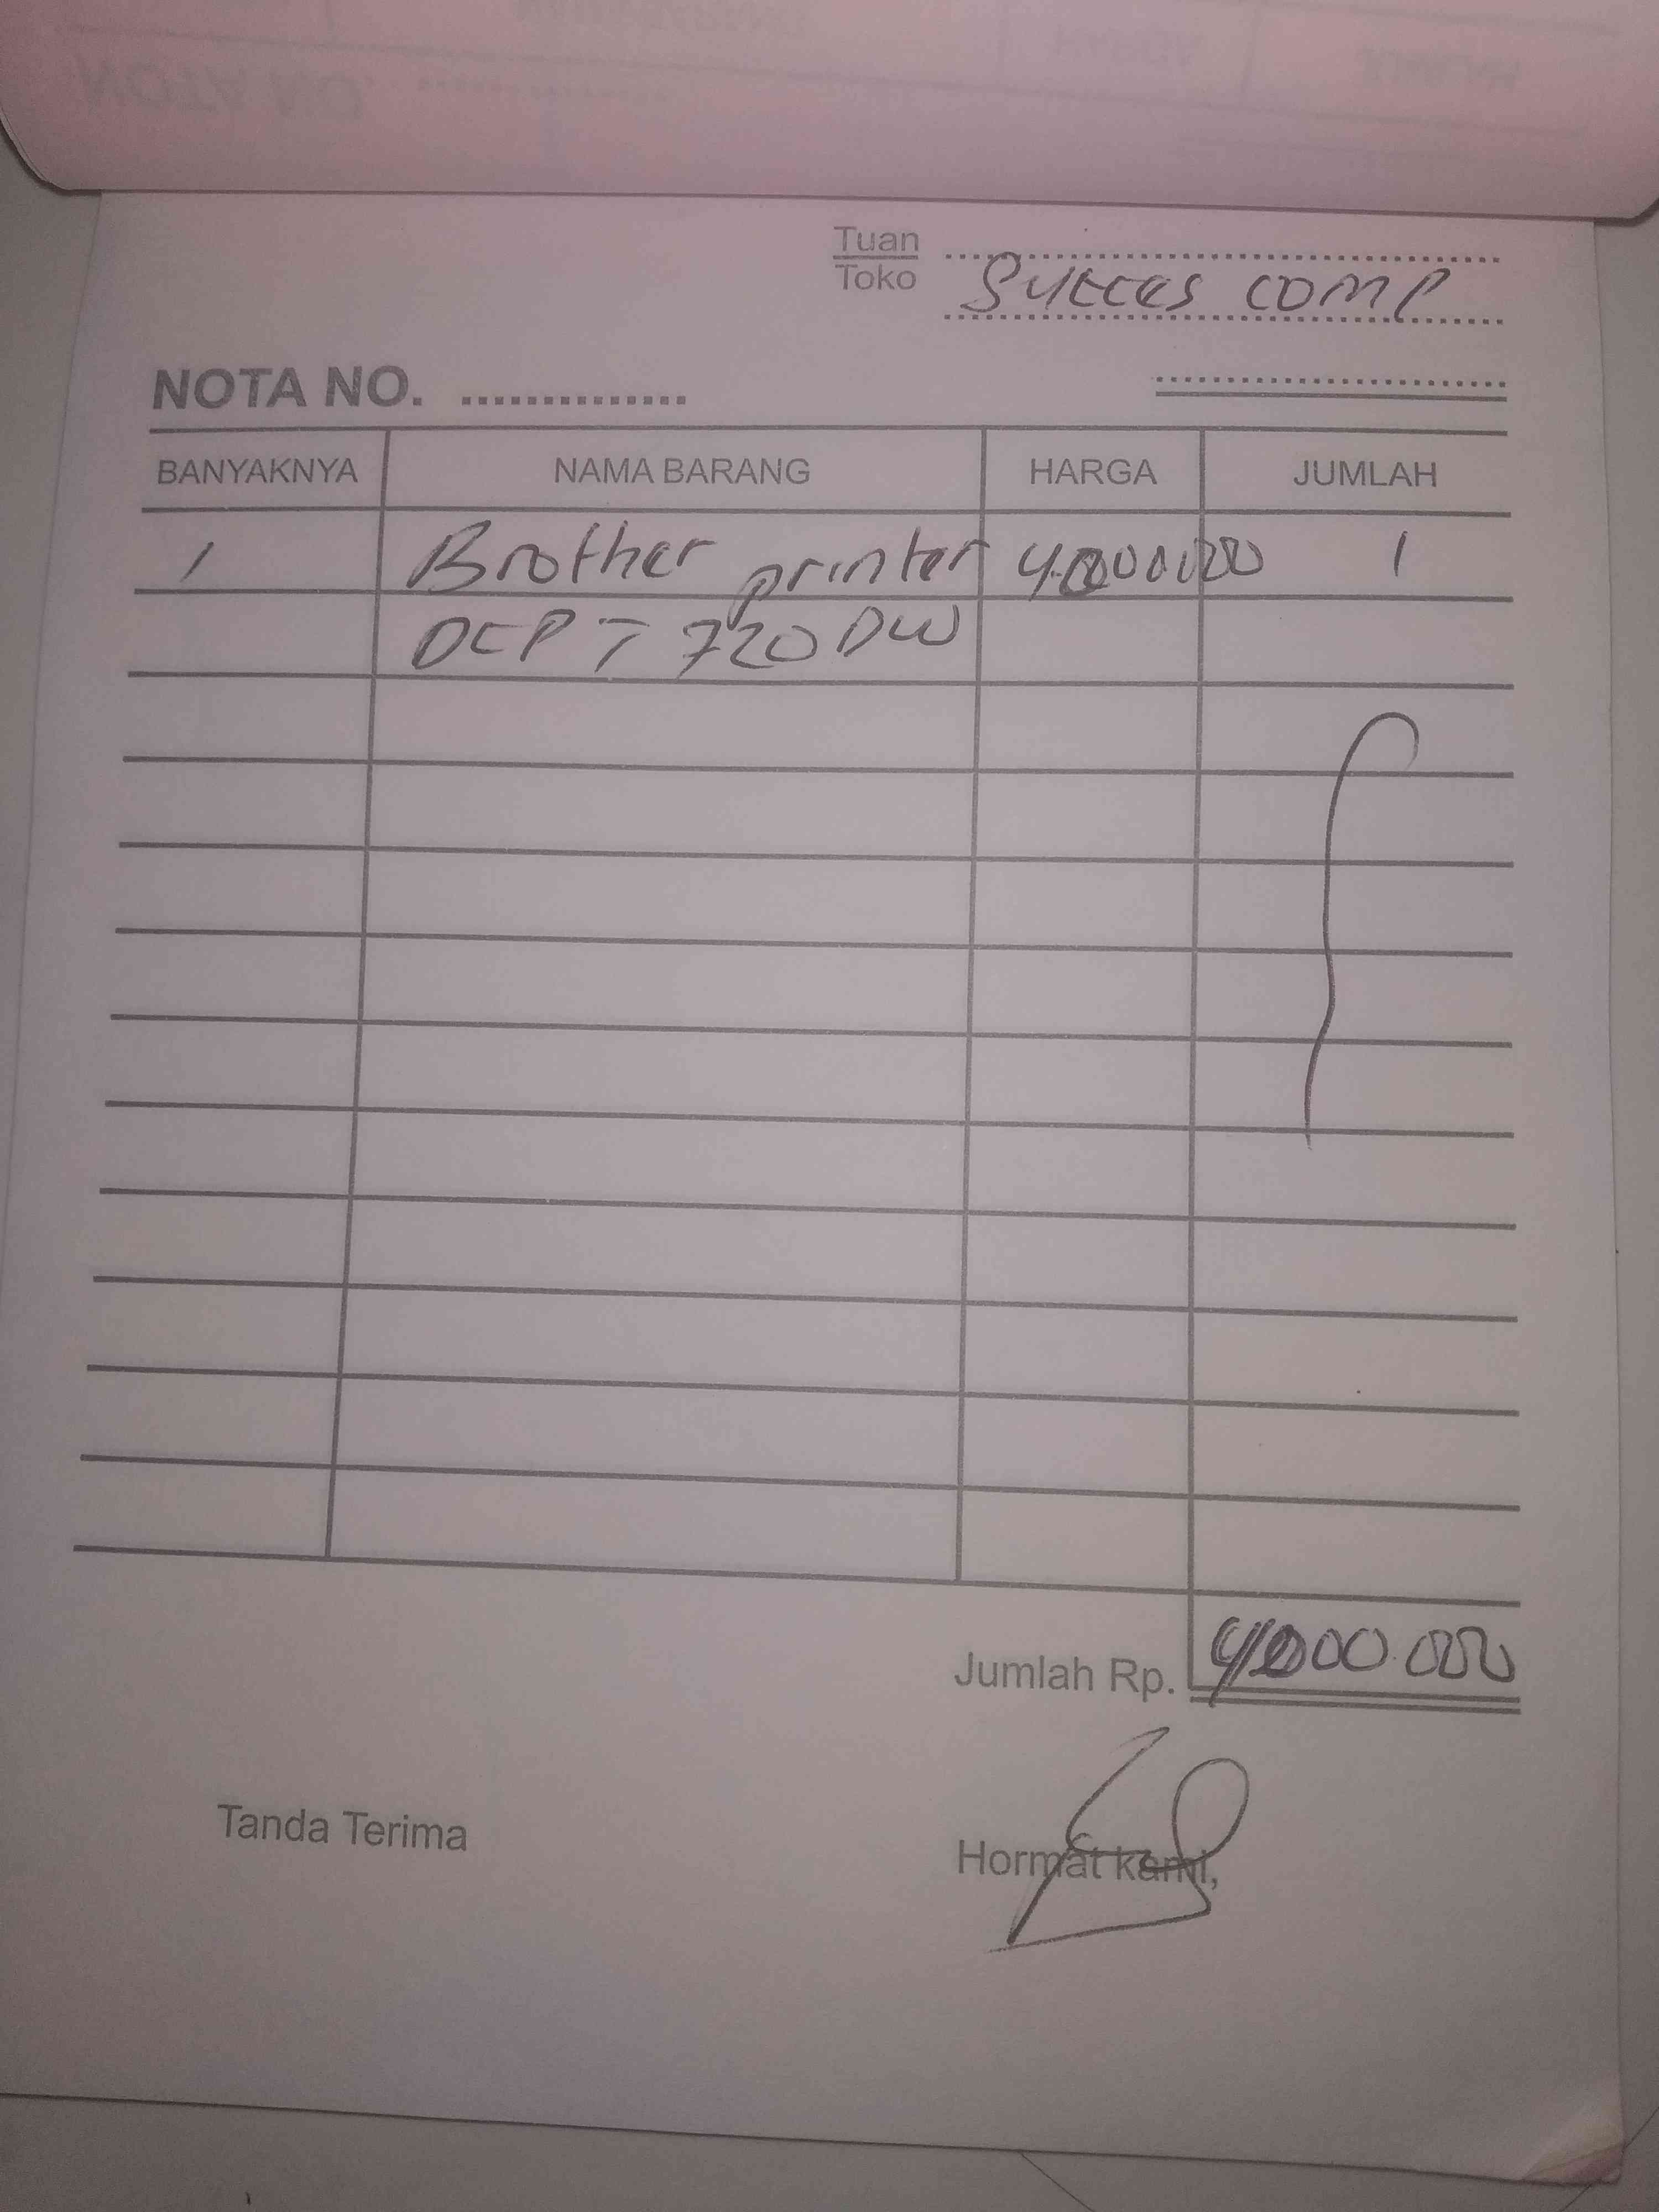 Tuan
Toko
Succes comp
NOTA NO. ..............
BANYAKNYA NAMA BARANG HARGA JUMLAH
1 Brother printer 4.000.000 1
DCP T 720 DW
Jumlah Rp. 4000.000
Tanda Terima
Hormat kami,